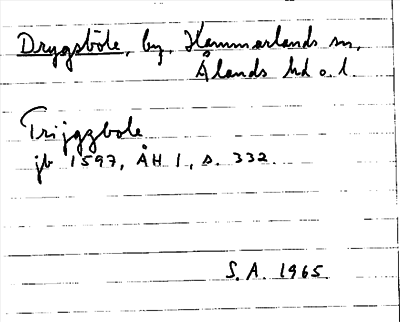 Drygsböle, by, Hammarlands sn,
Ålands hd o. l.
Trijgzbole
jb 1597, ÅH 1, s. 332.
S.A. 1965